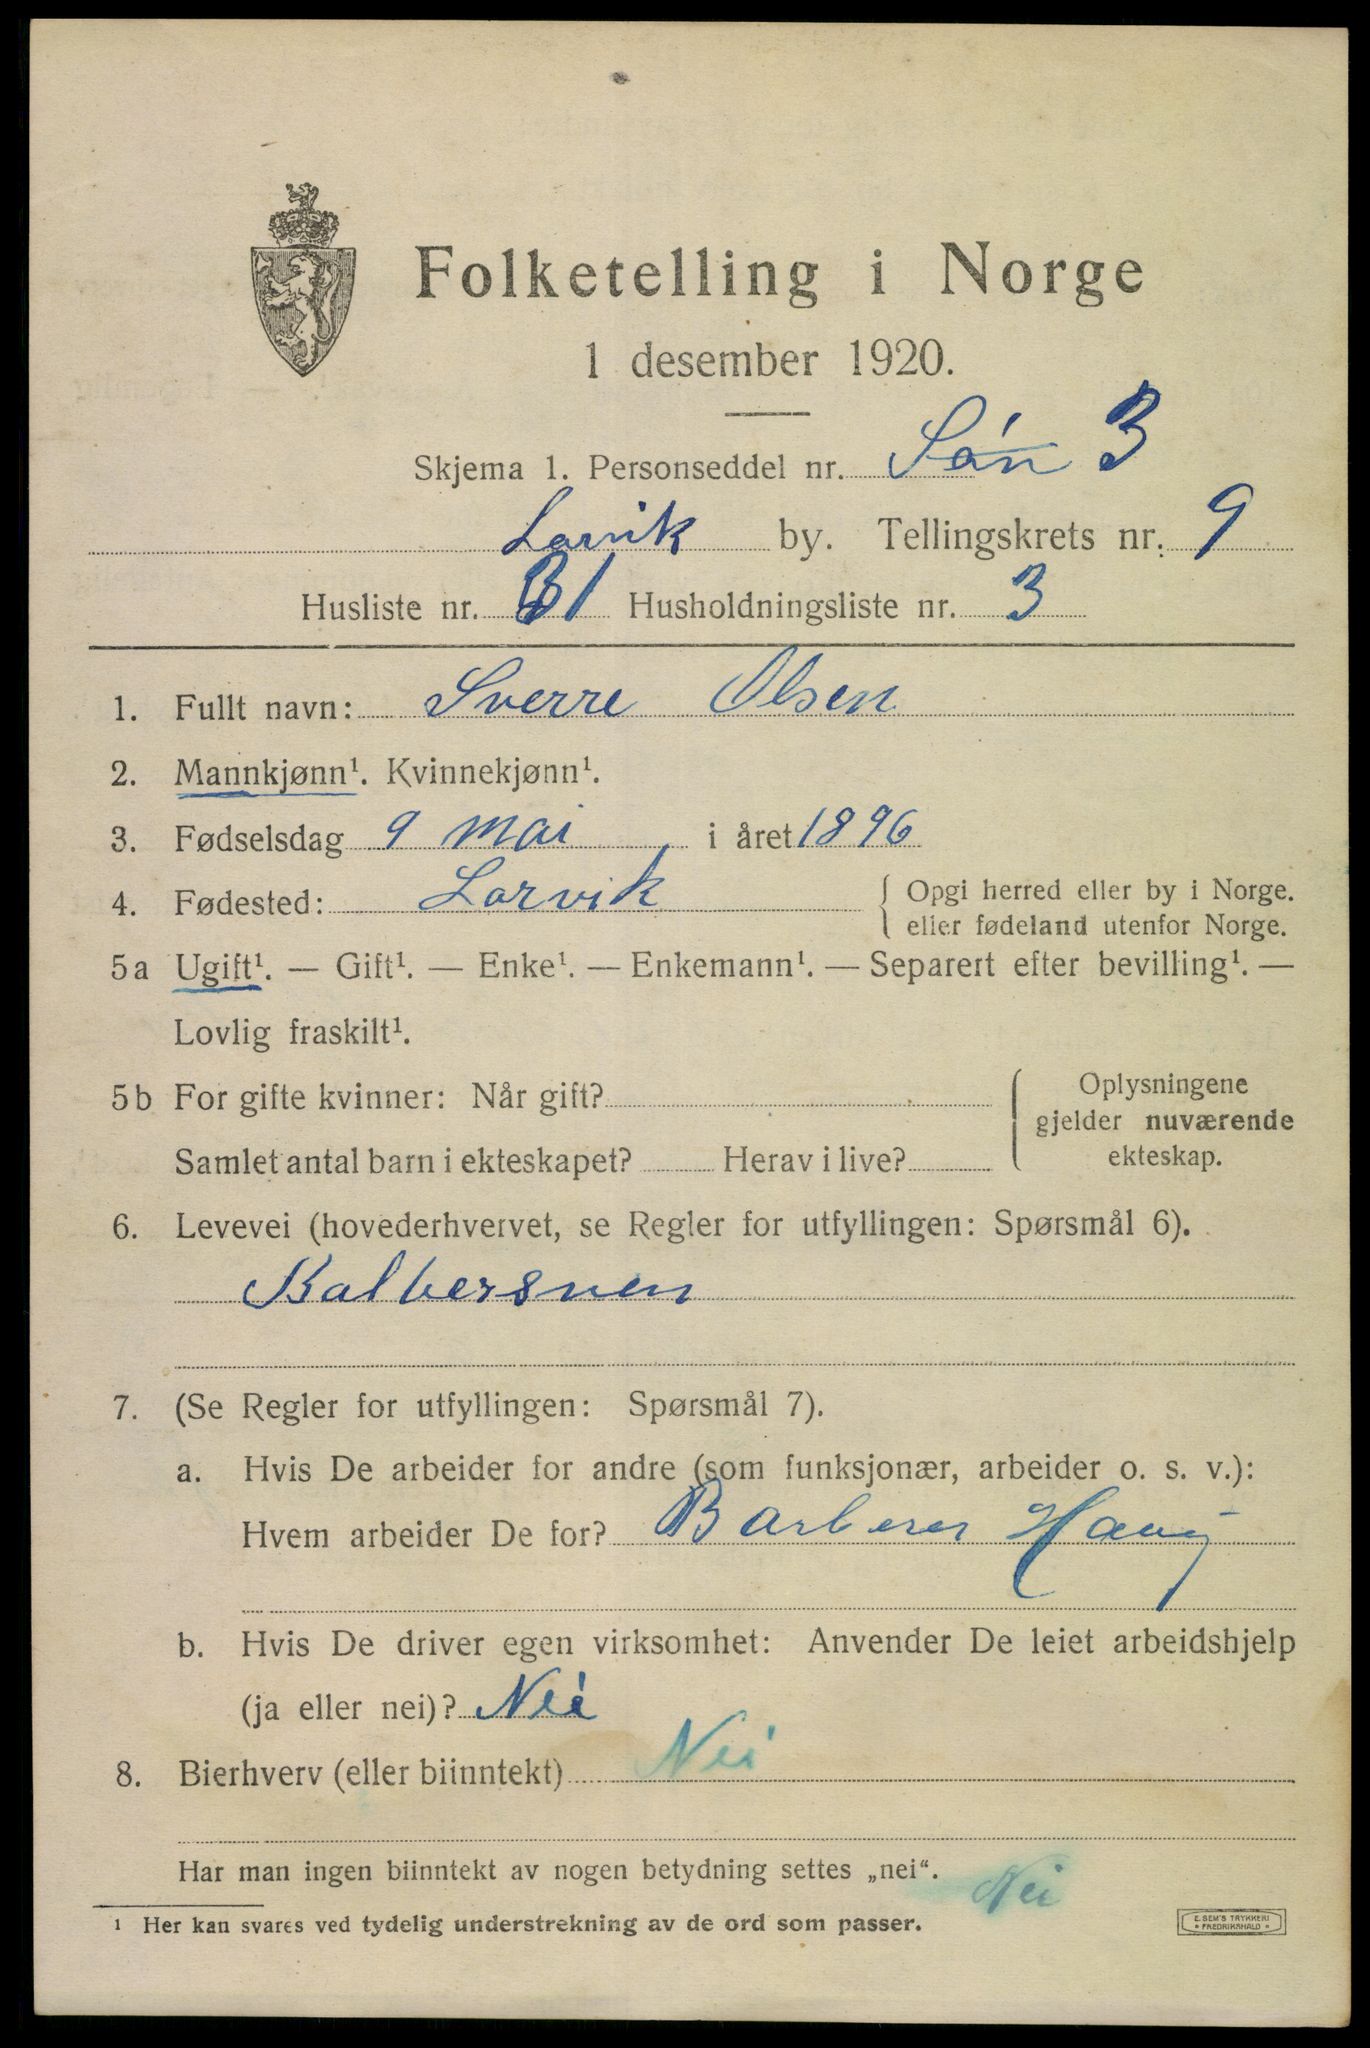 Folketelling i Norge
1 desember 1920.
Skjema 1. Personseddel nr. Søn 3
Larvik by. Tellingskrets nr. 9
Husliste nr. 31 Husholdningsliste nr. 3
1. Fullt navn: Sverre Olsen
2. Mannkjønn¹. Kvinnekjønn¹.
3. Fødselsdag 9 mai i året 1896
4. Fødested: Larvik { Opgi herred eller by i Norge.
eller fødeland utenfor Norge.
5a Ugift¹. — Gift¹. — Enke¹. — Enkemann¹. — Separert efter bevilling¹. —
Lovlig fraskilt¹.
5b For gifte kvinner: Når gift?
Samlet antal barn i ekteskapet? Herav i live?
Oplysningene
gjelder nuværende
ekteskap.
6. Levevei (hovederhvervet, se Regler for utfyllingen: Spørsmål 6).
Balbersven
7. (Se Regler for utfyllingen: Spørsmål 7).
a. Hvis De arbeider for andre (som funksjonær, arbeider o. s. v.):
Hvem arbeider De for? Barberer Haug
b. Hvis De driver egen virksomhet: Anvender De leiet arbeidshjelp
(ja eller nei)? Nei
8. Bierhverv (eller biinntekt) Nei
Har man ingen biinntekt av nogen betydning settes „nei“. Nei
¹ Her kan svares ved tydelig understrekning av de ord som passer.
E. SEM'S TRYKKERI
FREDRIKSHALD